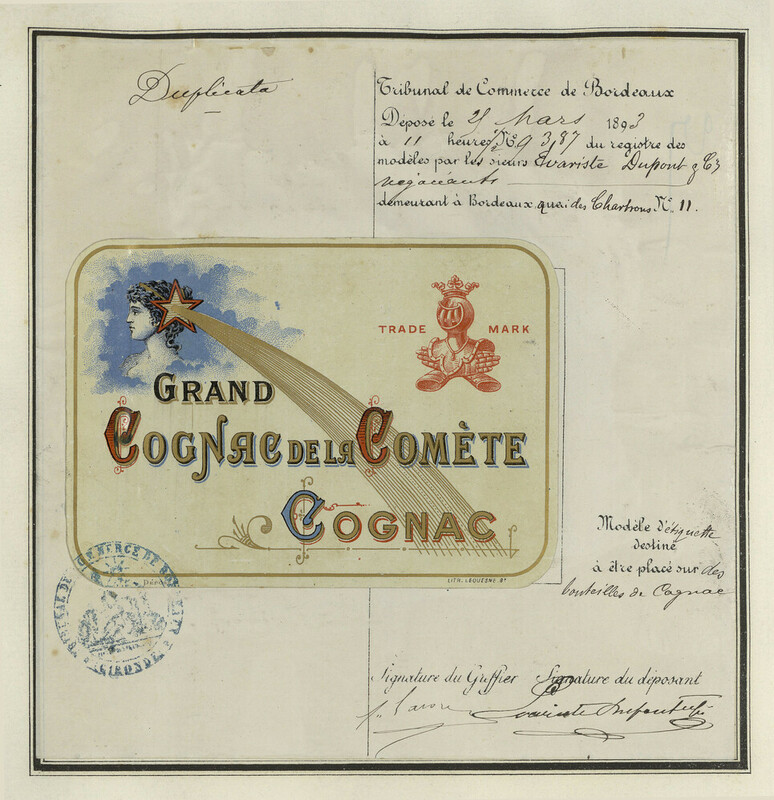 Duplicata
Tribunal de Commerce de Bordeaux
Déposé le 25 Mars 1893
à 11 heures ½ N° 9387 du registre des
modèles par les sieurs Evariste Dupont & Cie
négociants
demeurant à Bordeaux, quai des Chartrons N° 11.
TRADE MARK
GRAND
COGNAC DE LA COMÈTE
COGNAC
LITH. LEQUESNE Bx
Modèle d'étiquette
destiné
à être placé sur des
bouteilles de Cognac
TRIBUNAL DE COMMERCE DE BORDEAUX
GIRONDE
Signature du Greffier Signature du déposant
Evariste Dupont & Cie